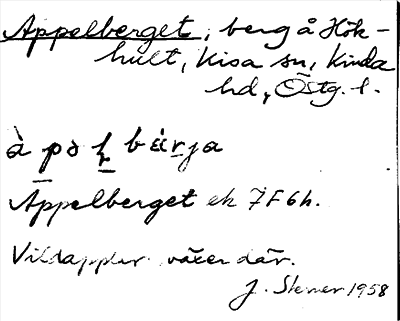 Appelberget, berg å Hök-
hult, Kisa sn, Kinda
hd, Östg. l.
à pə ḷ bärja
Appelberget ek 7F6h.
Vildapplar växer där.
J. Stener 1958